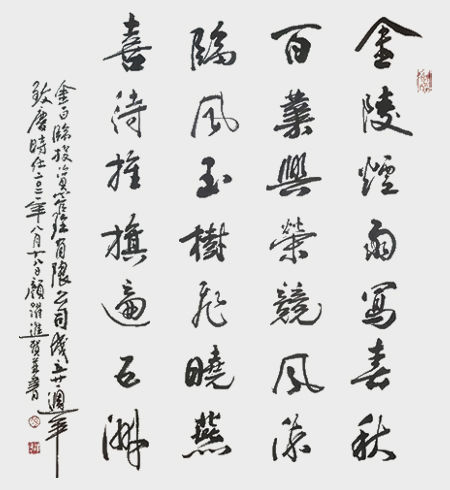 金陵煙雨寫春秋
百業興榮競風流
臨風玉樹飛曉燕
喜待旌旗遍五洲
金百臨投資管理有限公司成立廿週年
致慶時在二〇二一年八月十八日顧躍進賀並書